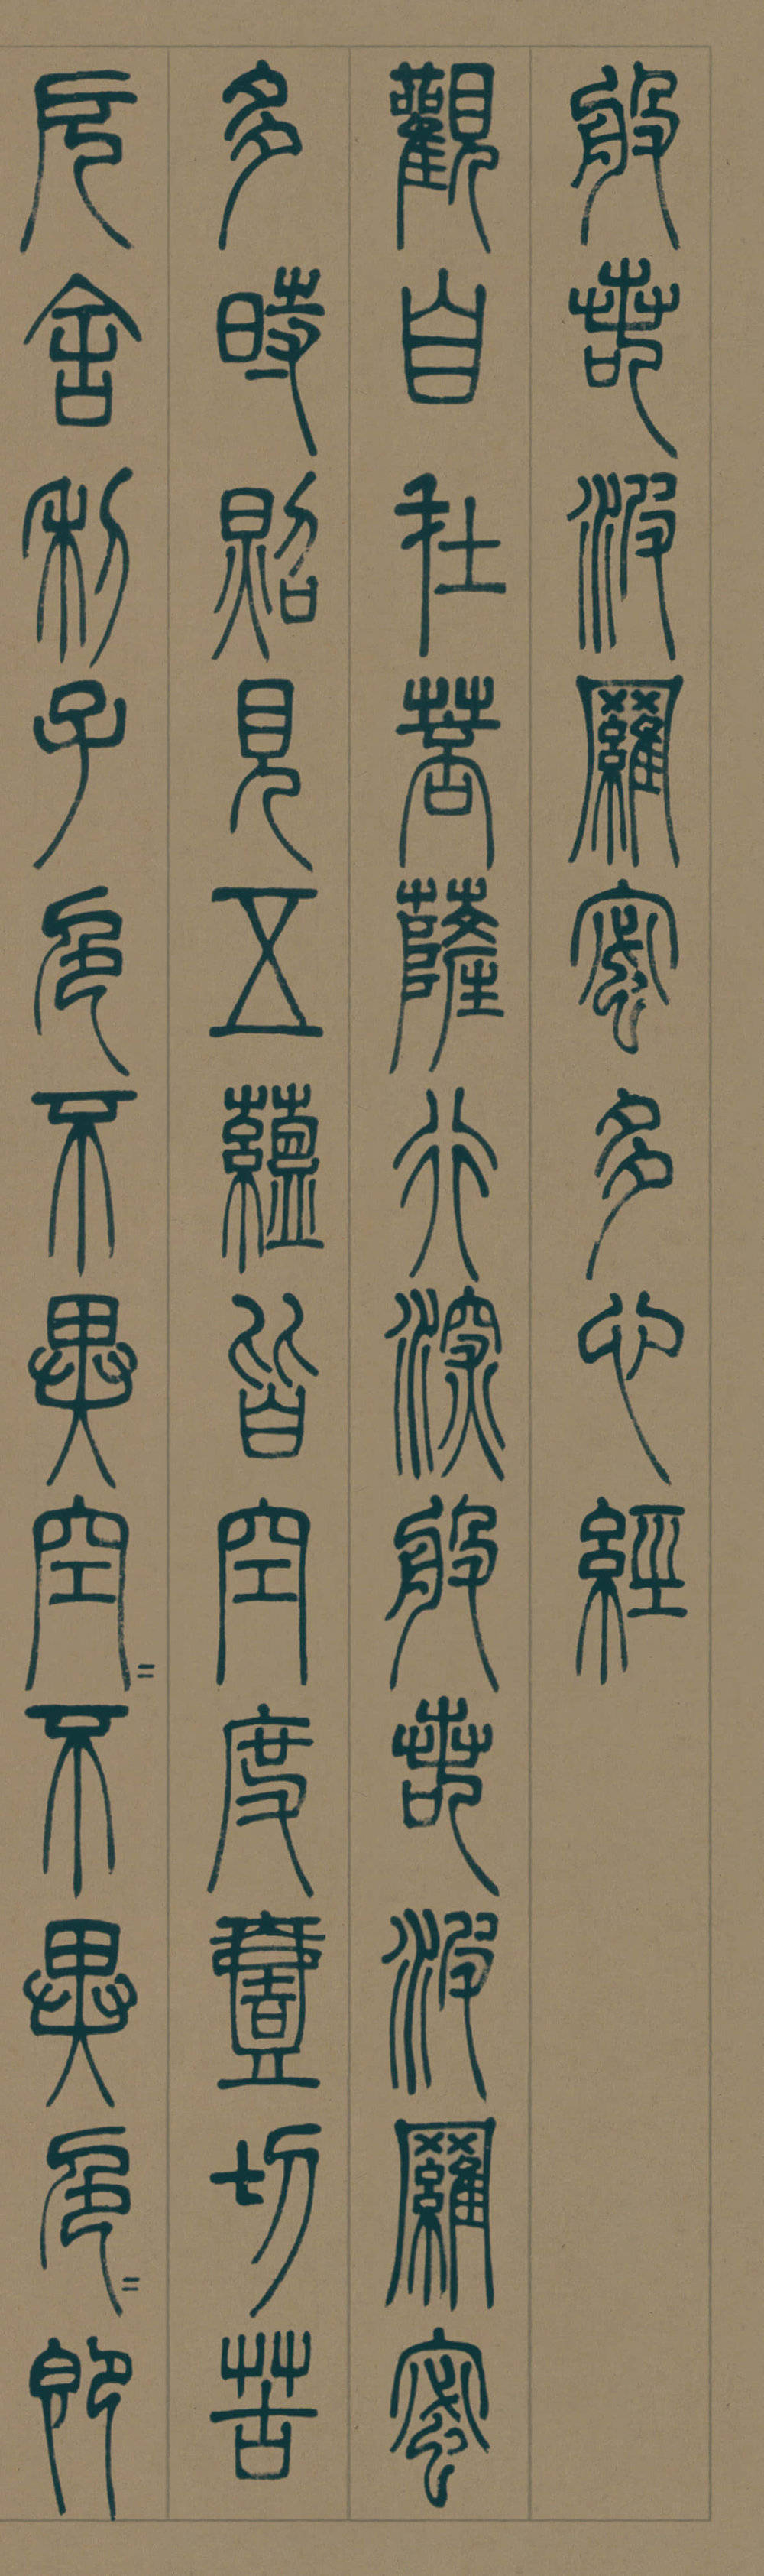 般若波羅蜜多心經
觀自在菩薩行深般若波羅蜜
多時照見五蘊皆空度壹切苦
厄舍利子色不異空=不異色=即